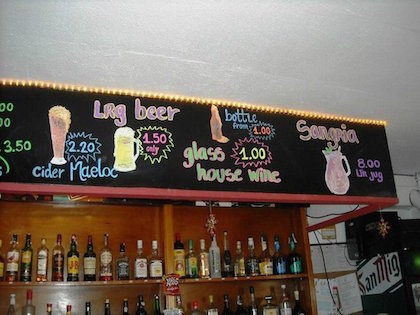 .00
3.50
2.20
cider Maeloc
LRG beer
1.50
only
bottle
from 1.00
glass 1.00
house wine
Sangria
8.00
Ltr jug
San Mig